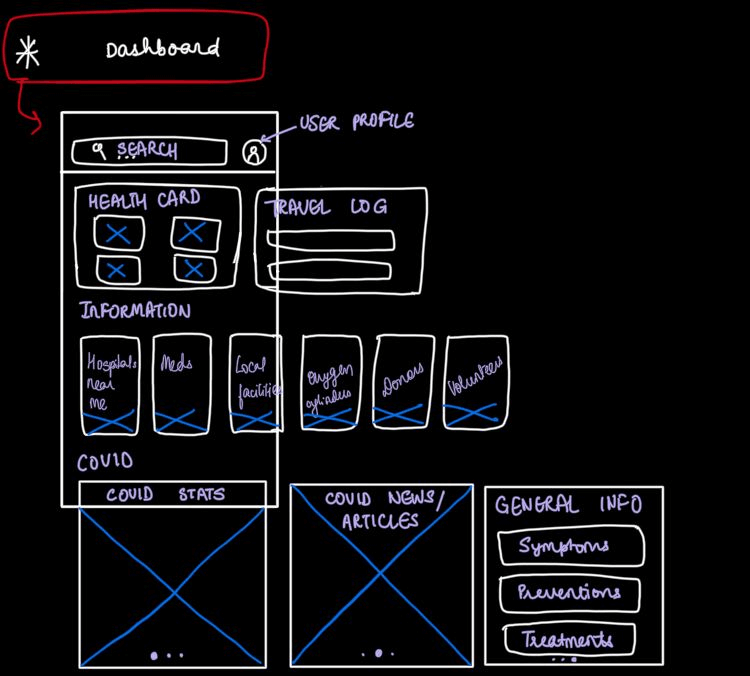 Dashboard
USER PROFILE
SEARCH
HEALTH CARD
TRAVEL LOG
INFORMATION
Hospitals
near
me
Meds
Local
facilities
Oxygen
cylinders
Donors
Volunteers
COVID
COVID STATS
COVID NEWS/
ARTICLES
GENERAL INFO
Symptoms
Preventions
Treatments